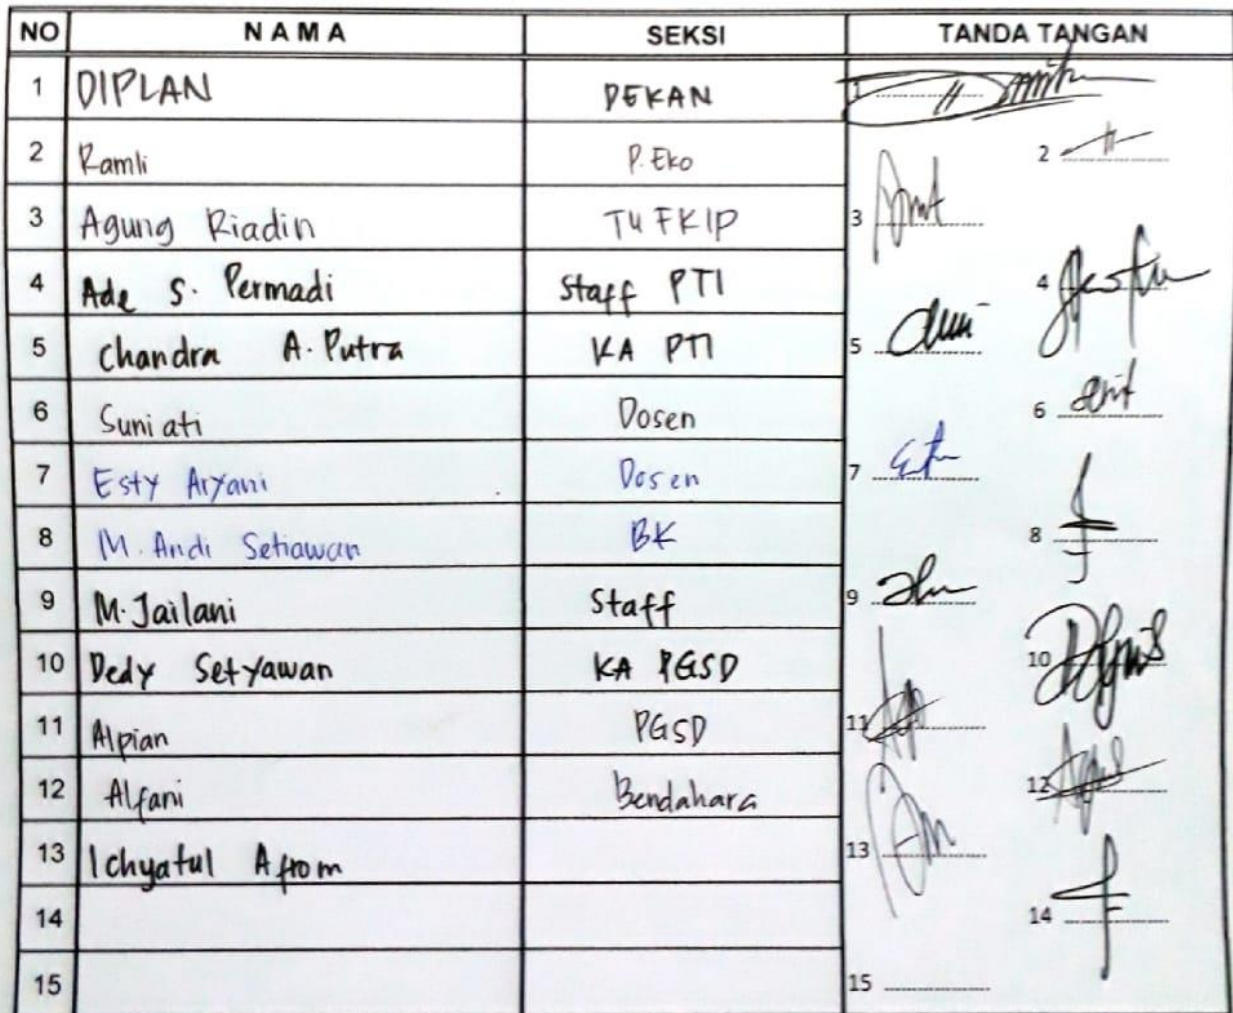 NO NAMA SEKSI TANDA TANGAN
1 DIPLAN DEKAN 1
2 Ramli P. Eko 2
3 Agung Riadin TU FKIP 3
4 Ade S. Permadi Staff PTI 4
5 Chandra A. Putra KA PTI 5
6 Suniati Dosen 6
7 Esty Aryani Dosen 7
8 M. Andi Setiawan BK 8
9 M. Jailani Staff 9
10 Dedy Setyawan KA PGSD 10
11 Alpian PGSD 11
12 Alfani Bendahara 12
13 Ichyatul Afrom 13
14 14
15 15